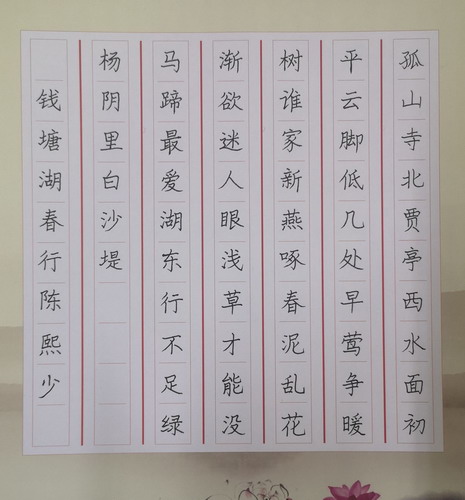 孤山寺北贾亭西水面初
平云脚低几处早莺争暖
树谁家新燕啄春泥乱花
渐欲迷人眼浅草才能没
马蹄最爱湖东行不足绿
杨阴里白沙堤
钱塘湖春行陈熙少